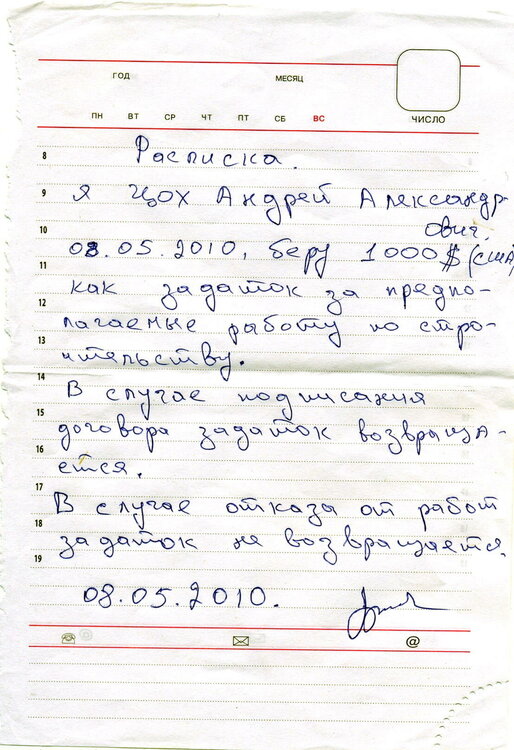 ГОД МЕСЯЦ
ПН ВТ СР ЧТ ПТ СБ ВС ЧИСЛО
8 Расписка.
9 Я Цох Андрей Александр-
ович
10 08.05.2010, беру 1000$ (США)
11 как задаток за предпо-
12 лагаемые работу по стро-
13 ительству.
14 В случае подписания
15 договора задаток возвраща-
16 ется.
17 В случае отказа от работ
18 задаток не возвращается.
19 08.05.2010.
@